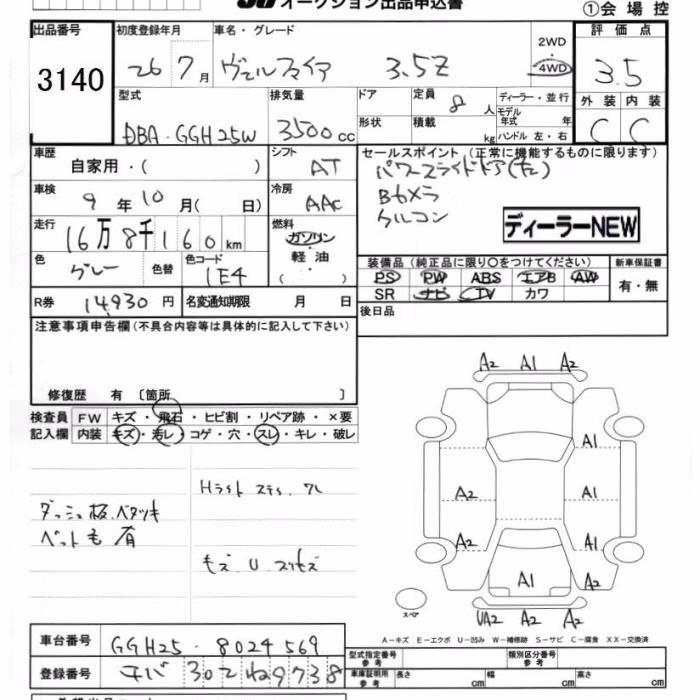 オークション出品申込書
①会場控
出品番号 3140
初度登録年月 26 7月
車名・グレード ヴェルファイア 3.5Z
2WD・4WD
評価点 3.5
外装 C 内装 C
型式 DBA-GGH25W
排気量 3500cc
ドア 形状
定員 8人
積載 kg
ディーラー・並行
モデル年式 年
ハンドル 左・右
車歴 自家用・( )
シフト AT
車検 9年10月( 日)
冷房 AAC
走行 16万8千160km
燃料 ガソリン・軽油・( )
色 グレー 色替
色コード 1E4
R券 14,930円
名変通知期限 月 日
セールスポイント(正常に機能するものに限ります)
パワースライドドア(左)
Bカメラ
クルコン
ディーラーNEW
装備品(純正品に限り○をつけてください)
新車保証書
PS PW ABS エアB AW
有・無
SR ナビ TV カワ
後日品
注意事項申告欄(不具合内容等は具体的に記入して下さい)
修復歴 有〔箇所 〕
検査員 FW キズ・飛石・ヒビ割・リペア跡・×要
記入欄 内装 キズ・汚レ・コゲ・穴・スレ・キレ・破レ
Hライト
ダッシュ板.ベタツキ
ペット毛 有
A2 A1 A2
A1
A2 A1
A2 A1
A1 A2
UA2 A2 A2
スペア
A－キズ E－エクボ U－凹み W－補修跡 S－サビ C－腐食 XX－交換済
車台番号 GGH25-8024569
登録番号 チバ302ね9738
型式指定番号 参考
類別区分番号 参考
車庫証明用 参考 長さ cm 幅 cm 高さ cm